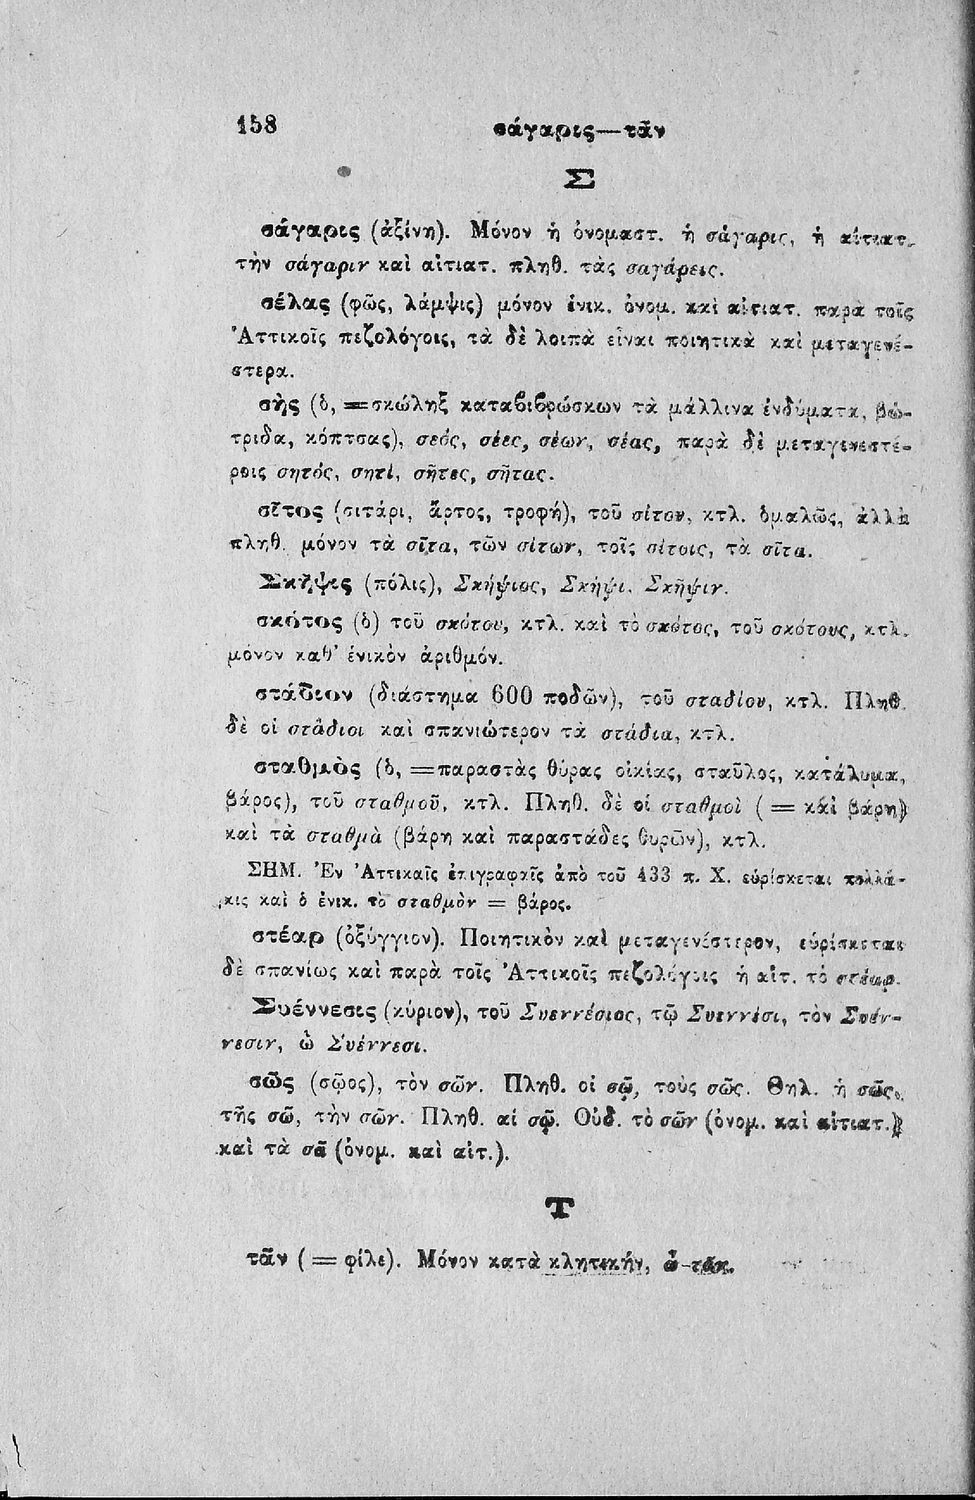 158
σάγαρις—τᾶν
Σ
σάγαρις (ἀξίνη). Μόνον ἡ ὀνομαστ. ἡ σάγαρις, ἡ αἰτιατ.
τὴν σάγαριν καὶ αἰτιατ. πληθ. τὰς σαγάρεις.
σέλας (φῶς, λάμψις) μόνον ἑνικ. ὀνομ. καὶ αἰτιατ. παρὰ τοῖς
Ἀττικοῖς πεζολόγοις, τὰ δὲ λοιπὰ εἶναι ποιητικὰ καὶ μεταγενέ-
στερα.
σὴς (ὁ, =σκώληξ καταβιβρώσκων τὰ μάλλινα ἐνδύματα, βώ-
τριδα, κόπτσας), σεός, σέες, σέων, σέας, παρὰ δὲ μεταγενεστέ-
ροις σητός, σητί, σῆτες, σῆτας.
σῖτος (σιτάρι, ἄρτος, τροφή), τοῦ σίτου, κτλ. ὁμαλῶς, ἀλλὰ
πληθ. μόνον τὰ σῖτα, τῶν σίτων, τοῖς σίτοις, τὰ σῖτα.
Σκῆψις (πόλις), Σκήψιος, Σκήψι, Σκῆψιν.
σκότος (ὁ) τοῦ σκότου, κτλ. καὶ τὸ σκότος, τοῦ σκότους, κτλ.
μόνον καθ' ἑνικὸν ἀριθμόν.
στάδιον (διάστημα 600 ποδῶν), τοῦ σταδίου, κτλ. Πληθ.
δὲ οἱ στάδιοι καὶ σπανιώτερον τὰ στάδια, κτλ.
σταθμὸς (ὁ, =παραστὰς θύρας οἰκίας, σταῦλος, κατάλυμα,
βάρος), τοῦ σταθμοῦ, κτλ. Πληθ. δὲ οἱ σταθμοὶ ( = καὶ βάρη)
καὶ τὰ σταθμὰ (βάρη καὶ παραστάδες θυρῶν), κτλ.
ΣΗΜ. Ἐν Ἀττικαῖς ἐπιγραφαῖς ἀπὸ τοῦ 433 π. Χ. εὑρίσκεται πολλά-
κις καὶ ὁ ἑνικ. τὸ σταθμὸν = βάρος.
στέαρ (ὀξύγγιον). Ποιητικὸν καὶ μεταγενέστερον, εὑρίσκεται
δὲ σπανίως καὶ παρὰ τοῖς Ἀττικοῖς πεζολόγοις ἡ αἰτ. τὸ στέαρ.
Συέννεσις (κύριον), τοῦ Συεννέσιος, τῷ Συεννέσι, τὸν Συέν-
νεσιν, ὦ Συέννεσι.
σῶς (σῷος), τὸν σῶν. Πληθ. οἱ σῷ, τοὺς σῶς. Θηλ. ἡ σῶς,
τῆς σῶ, τὴν σῶν. Πληθ. αἱ σῷ. Οὐδ. τὸ σῶν (ὀνομ. καὶ αἰτιατ.)
καὶ τὰ σᾶ (ὀνομ. καὶ αἰτ.).
Τ
τᾶν ( = φίλε). Μόνον κατὰ κλητικήν, ὦ τᾶν.